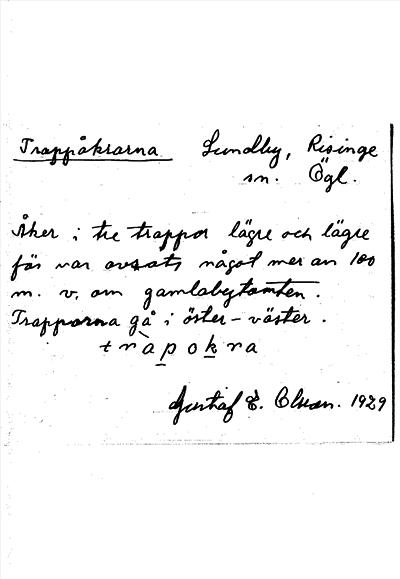 Trappåkrarna Lundby, Risinge
sn. Ögl.
Åker i tre trappor lägre och lägre
för var avsats något mer än 100
m. v. om gamlabytomten.
Trapporna gå i öster-väster.
tràpokra
Gustaf E. Olson. 1929